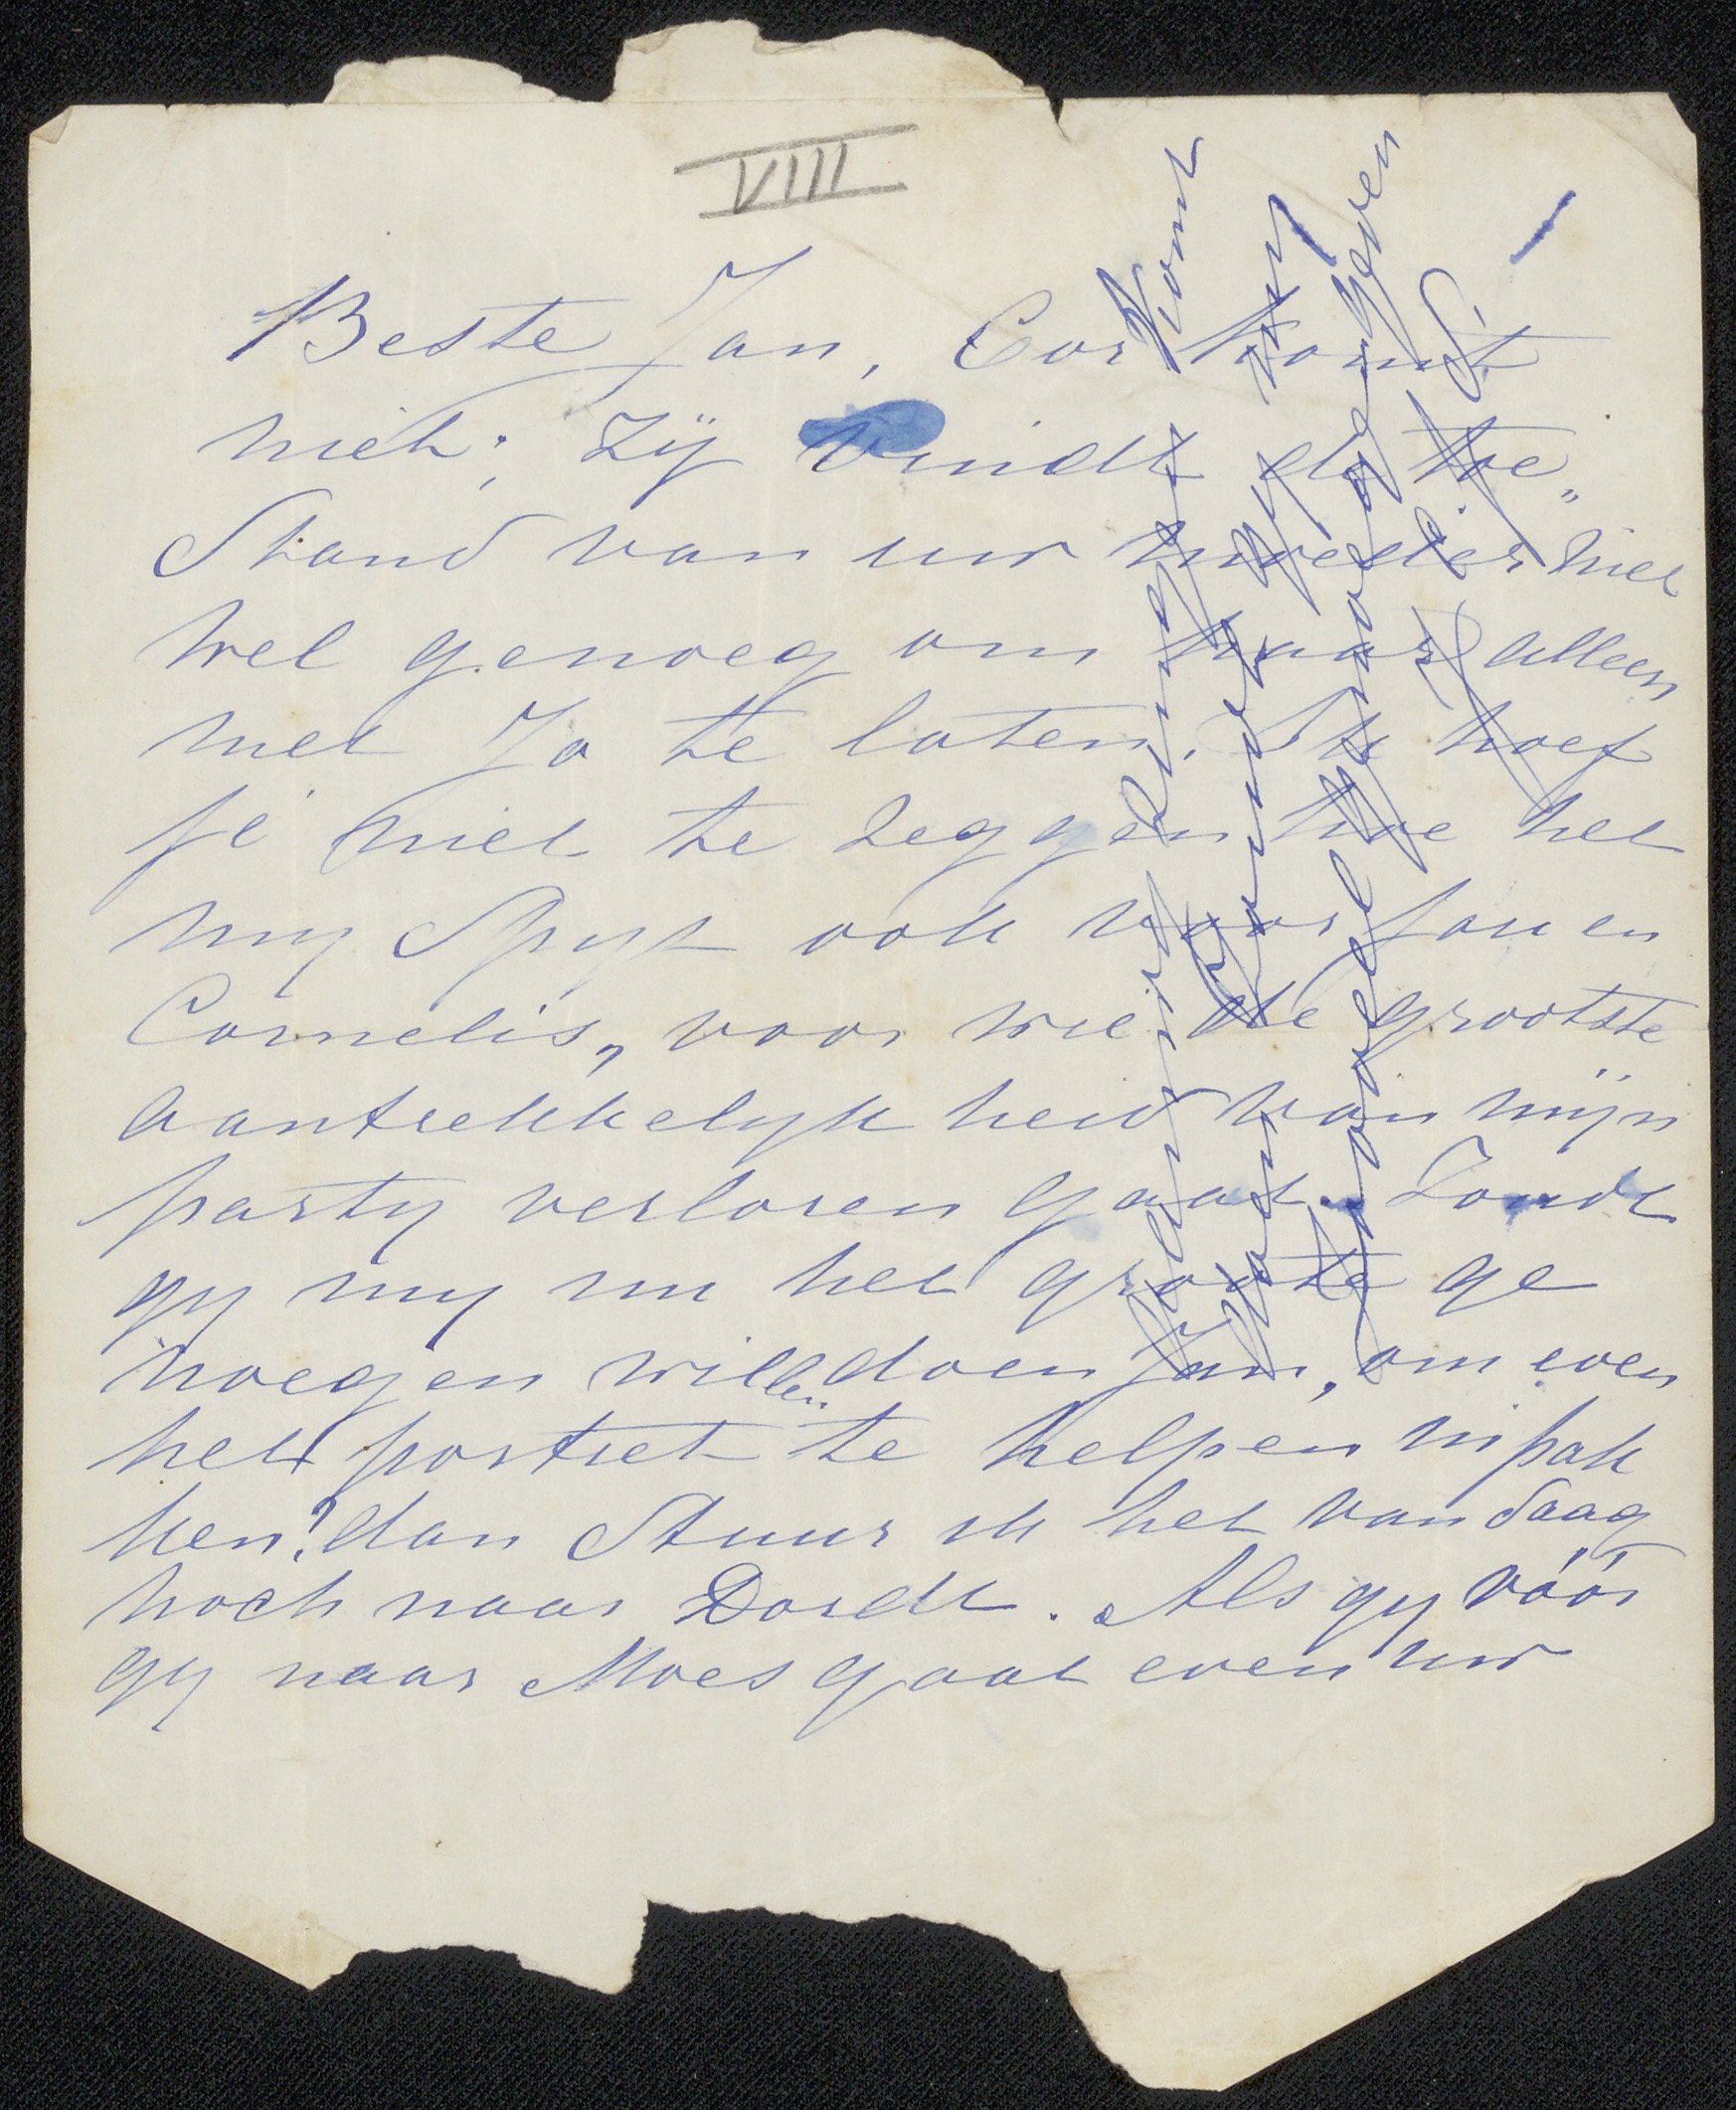 VIII
Beste Jan, Cor komt
niet; zÿ vindt de toe„
Stand van uw moeder niet
wel genoeg om haar alleen
met Jo te laten. Ik hoef
je niet te zeggen hoe het
my Spyt ook voor jou en
Cornelis, voor wie de grootste
aantrekkelyk heid van mijn
party verloren gaat. Zoudt
gy my nu het groote ge
noegen willen doen Jan, om even
het portret te helpen inpak
ken? dan Stuur ik het van daag
noch naar Dordt. Als gy vóór
gy naar Moes gaat even uw
komt
Dan zoudt gy my
genoegen geven